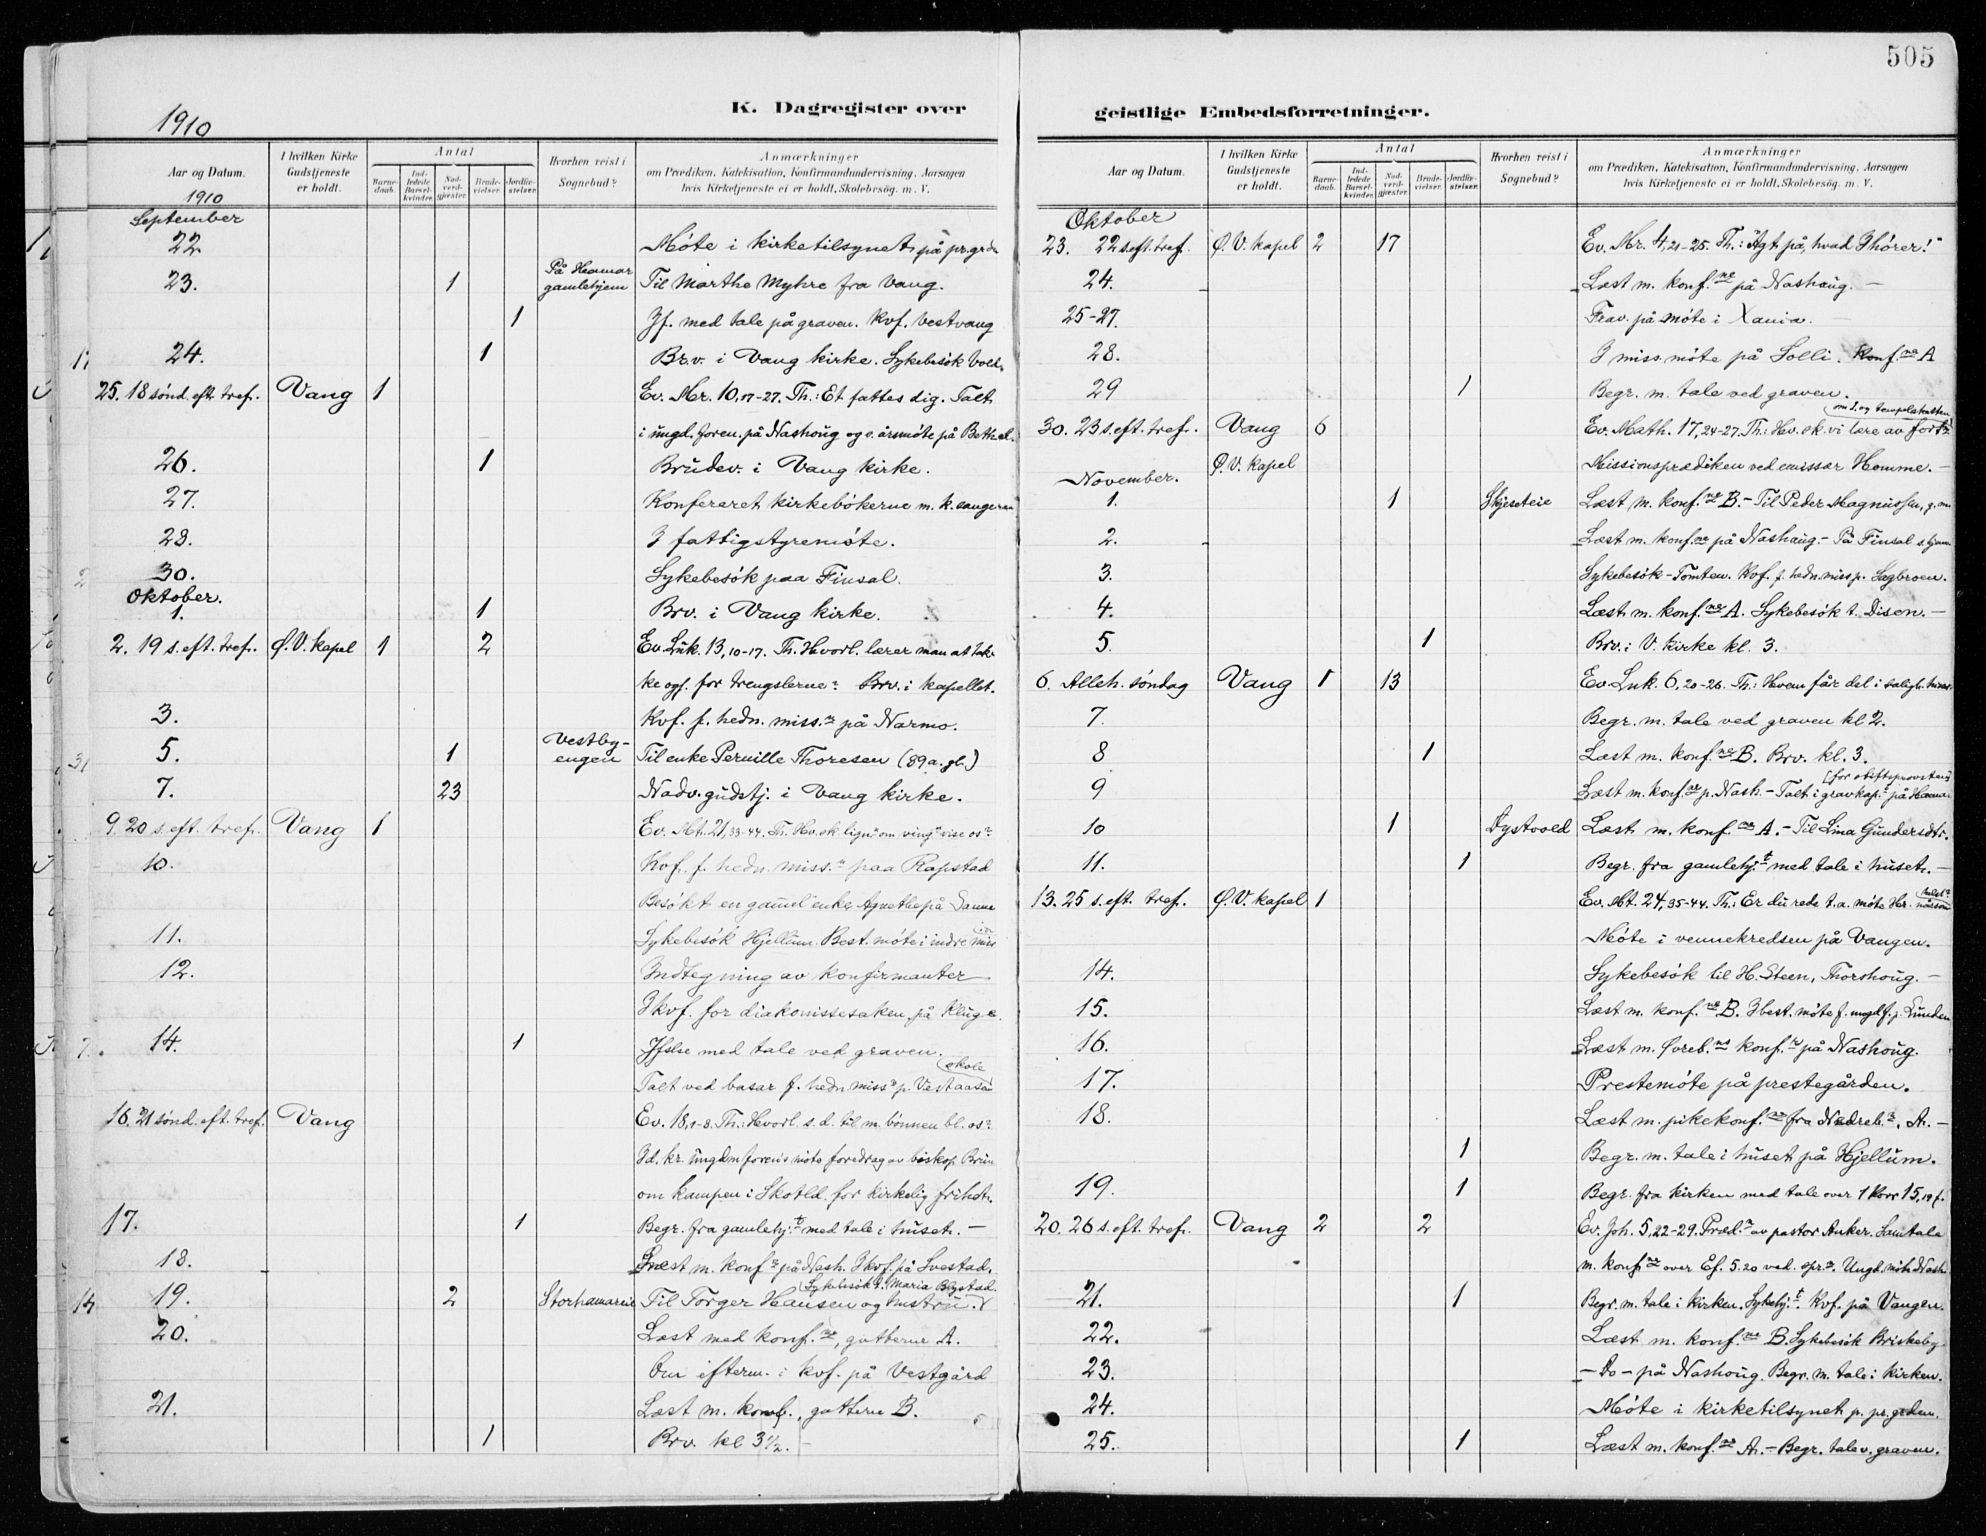 505
K. Dagregister over
geistlige Embedsforretninger.
1910
Aar og Datum.
I hvilken Kirke Gudstjeneste er holdt.
Antal
Barnedaab.
Indledede Barselkvinder.
Nadverdgjæster.
Brudevielser.
Jordfæstelser.
Hvorhen reist i Sognebud?
Anmærkninger
om Prædiken, Katekisation, Konfirmandundervisning, Aarsagen
hvis Kirketjeneste ei er holdt, Skolebesøg. m. V.
1910
September
22. Møte i kirketilsynet på pr.grdn
23. 1 På Hamar gamlehjem Til Marthe Myhre fra Vang.
1 Jf. med tale på graven. Kvf. Vestvang
24. 1 Brv. i Vang kirke. Sykebesök Vold.
25. 18 sønd. eft. tref. Vang 1 Ev. Mr. 10, 17-27. Th.: Et fattes dig. Talt
i ungd. foren. på Nashoug og s. årsmøte på Bethel.
26. 1 Brudev. i Vang kirke.
27. Konfereret kirkebökerne m. k.sangeren
28. I fattigstyremøte.
30. Sykebesök paa Finsal.
Oktober.
1. 1 Brv. i Vang kirke.
2. 19 s. eft. tref. Ø.V. kapel 1 2 Ev. Luk. 13, 10-17. Th. Hvorl. lærer man at tak-
ke ogs. for trengslerne? Brv. i kapellet.
3. Kvf. f. hedn. miss.n på Narmo.
5. 1 Vestby-engen Til enke Pernille Thoresen (89 a. gl.)
7. 23 Nadv. gudstj. i Vang kirke.
9. 20 s. eft. tref. Vang 1 Ev. Mt. 21, 33-44. Th. Hv. sk. lign. om ving. vise os?
10. Kvf. f. hedn. miss.n paa Rapstad
Besökt en gamel enke Agnethe på Sanne
11. Sykebesök Hjellum. Best. møte i indre miss
12. Indtegning av konfirmanter
I kvf. for diakonissesaken på Kluge.
14. 1 Jfslse med tale ved graven.
Talt ved basar f. hedn. miss.n p. Vestaasen skole
16. 21 sønd. eft. tref. Vang Ev. 18, 1-8. Th.: Hvorl. s. d. til m. bönnen bl. os?
Id. kr. ungdm forens møte foredrag av biskop Brun
om kampen i Skotld. for kirkelig frihet.
17. 1 Begr. fra gamlehj.t med tale i huset. —
18. Læst m. konf.n på Nash. I kvf. på Svestad.
19. 2 Storhamareie Til Torger Hansen og hustru. Sykebesök t. Maria Blystad.
20. Læst med konf.ne, gutterne A.
Om efterm. i kvf. på Vestgård
21. Læst m. konf., gutterne B.
1 Brv. kl 3½. —
Aar og Datum.
I hvilken Kirke Gudstjeneste er holdt.
Antal
Barnedaab.
Indledede Barselkvinder.
Nadverdgjæster.
Brudevielser.
Jordfæstelser.
Hvorhen reist i Sognebud?
Anmærkninger
om Prædiken, Katekisation, Konfirmandundervisning, Aarsagen
hvis Kirketjeneste ei er holdt, Skolebesøg. m. V.
Oktober
23. 22 s. eft. tref. Ø.V. kapel 2 17 Ev. Mr. 4, 21-25. Th.: "Agt på, hvad I hörer!"
24. Læst m. konf.ne på Nashaug. —
25-27. Frav. på møte i Xania.
28. I miss.møte på Solli. Konf.ne A
29 1 Begr. m. tale ved graven.
30. 23 s. eft. tref. Vang 6 Ev. Math. 17, 24-27. Th.: Hv. sk. vi lære av fort. om J. og tempelskatten
Ø.V. kapel Missionsprædiken ved emissær Homme. —
November.
1. 1 Skjeseteie Læst m. konf.ne B. — Til Peder Magnussen, g.m.
2. Læst m. konf.ne på Nashaug. — På Finsal s.hjem
3. Sykebesök — Tomten. Kvf. f. hedn. miss p. Sagbroen.
4. Læst m. konf.ne A. Sykebesök t. Disen. —
5. 1 Brv. i V. kirke kl. 3.
6. Alleh. söndag Vang 1 13 Ev. Luk. 6, 20-26. Th.: Hvem får del i saligh. himl.
7. Begr. m. tale ved graven kl 2.
8 1 Læst m. konf.ne B. Brv. kl. 3.
9 Læst m. konf.ne p. Nash. — Talt i gravkap.t på Hamar (for stiftsprovsten)
10 1 Dystvold Læst m. konf.ne A. — Til Lina Gundersdtr.
11. 1 Begr. fra gamlehj.t med tale i huset. —
13. 25 s. eft. tref. Ø.V. kapel 1 Ev. Mt. 24, 35-44. Th.: Er du rede t. a. møte Her. nårsom helst?
Møte i vennekredsen på Vangen.
14. Sykebesök til H. Steen, Thorshoug. —
15. Læst m. konf.ne B. I best. møte f. ungd.f. p. Lunden
16. Læst m. Øvreb.ns konf.r på Nashoug.
17. Prestemøte på prestegården.
18. Læst m. pikekonf.ne fra Nedreb.n, A. —
1 Begr. m. tale i huset på Hjellum.
19. 1 Begr. fra kirken med tale over 1 Kor 15, 19 f.
20. 26 s. eft. tref. Vang 2 2 Ev. Joh. 5, 22-29. Præd.n av pastor Anker. Samtale
m. konf.ne over Ef. 5.20 ved. spr.m. Ungd.möte Nash.
21. 1 Begr. m. tale i kirken. Sykehj.t. Kvf. på Vangen.
22. Læst m. konf.ne B. Sykebesök Briskeby
23. — Do — på Nashoug. Begr. m. tale i kirken.
24. Møte i kirketilsynet p. pr.grden.
25. 1 Læst m. konf.ne A. — Begr. tale v. graven.